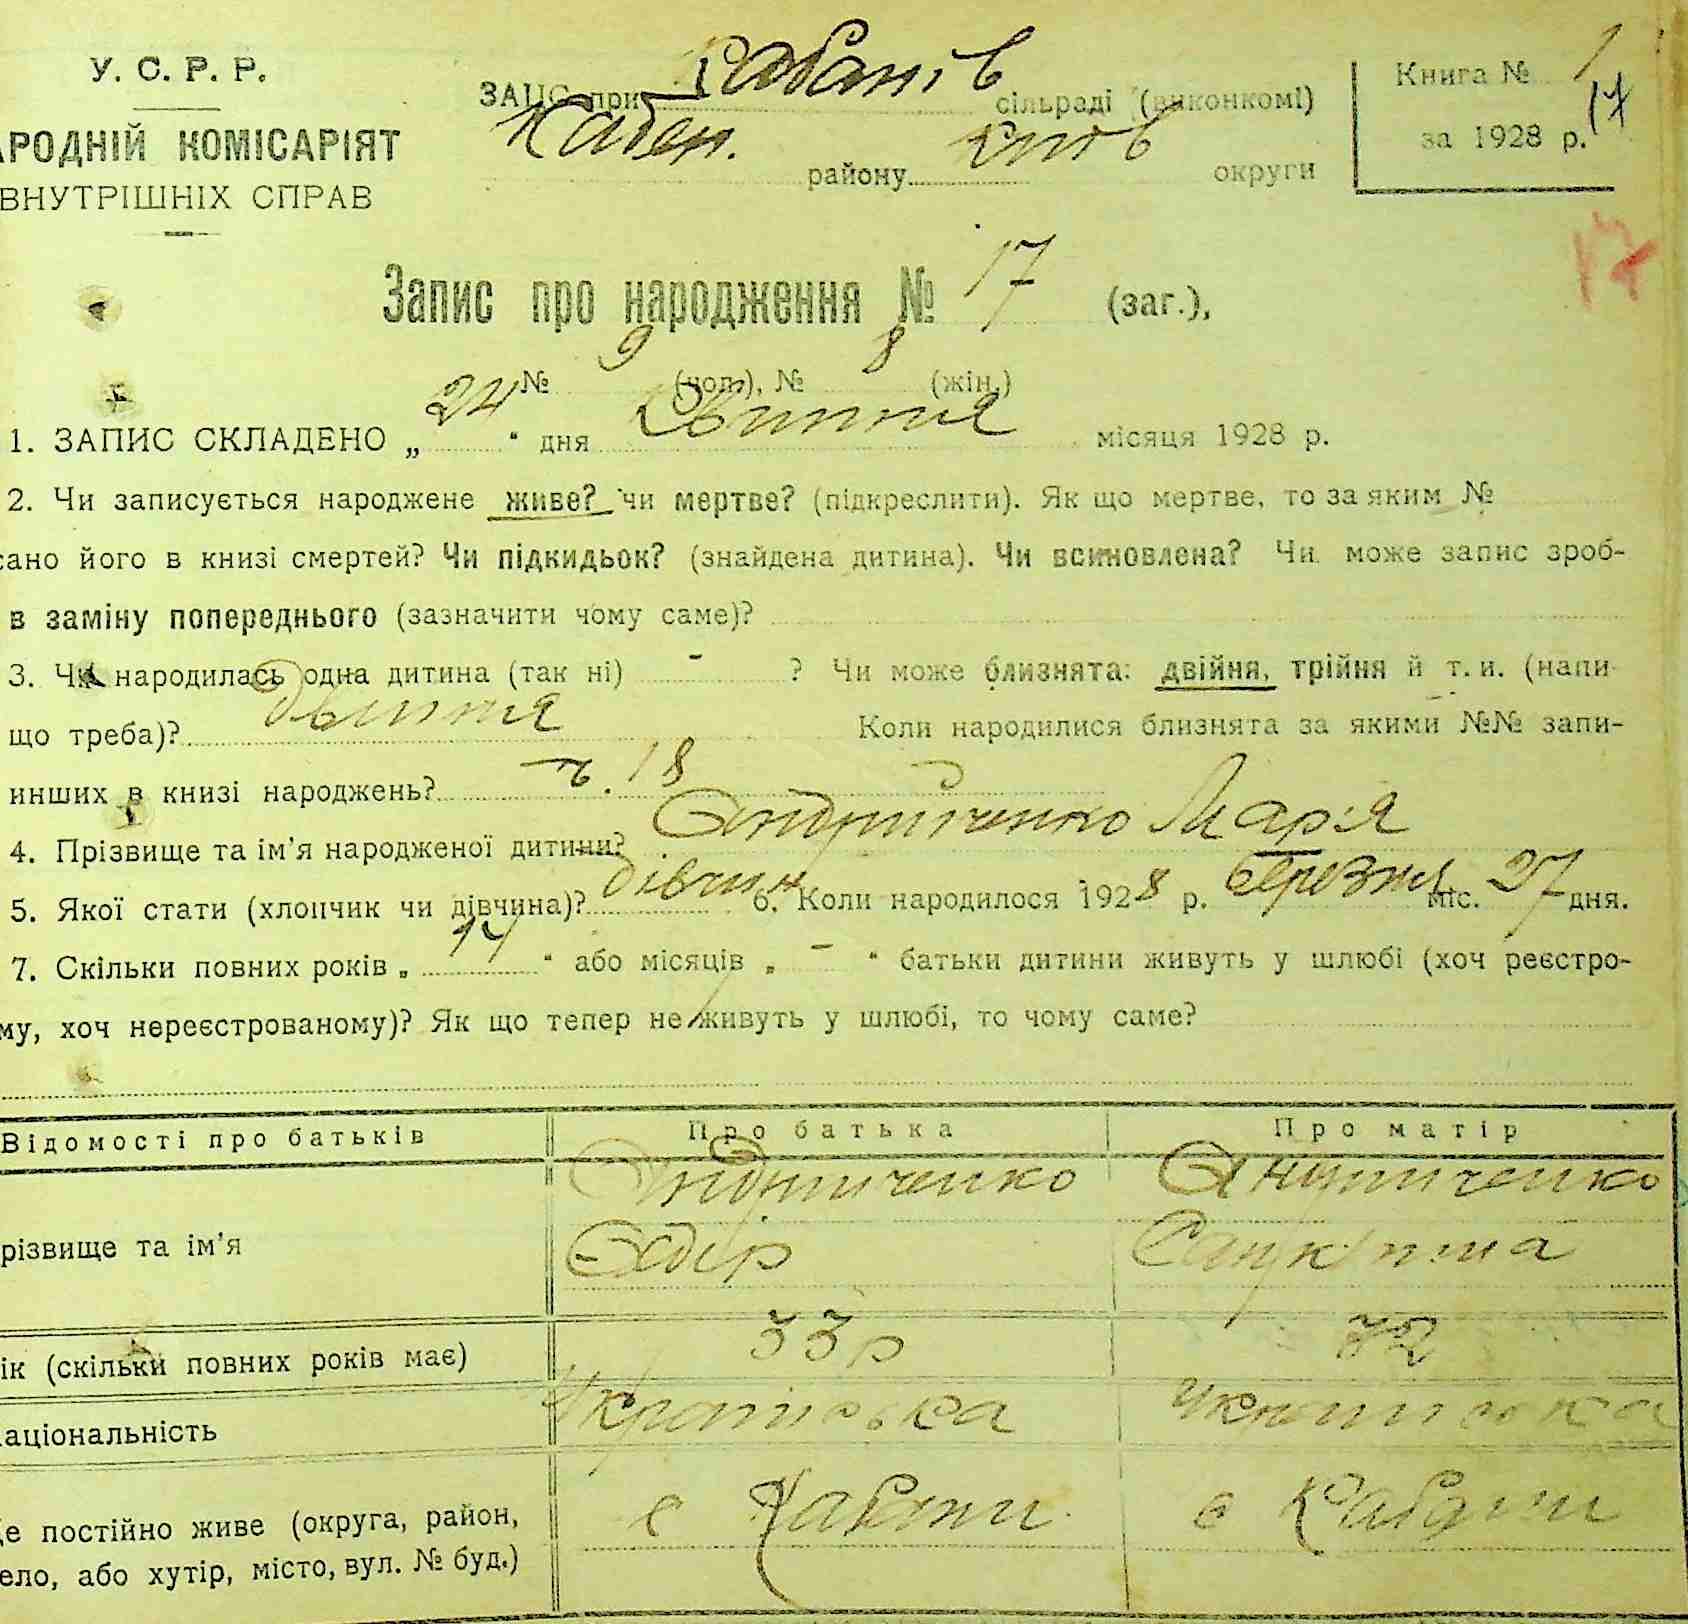 У. С. Р. Р.
АРОДНІЙ КОМІСАРІЯТ
ВНУТРІШНІХ СПРАВ
ЗАЦС при Кабанів сільраді (виконкомі)
району округи
Книга № 1
17
за 1928 р.
17
Запис про народження № 17 (заг.),
№ 9 (чол.), № 8 (жін.)
1. ЗАПИС СКЛАДЕНО „ 24 “ дня Квітня місяця 1928 р.
2. Чи записується народжене живе? чи мертве? (підкреслити). Як що мертве, то за яким №
сано його в книзі смертей? Чи підкидьок? (знайдена дитина). Чи всиновлена? Чи може запис зроб-
в заміну попереднього (зазначити чому саме)?
3. Чи народилась одна дитина (так ні) - ? Чи може близнята: двійня, трійня й т. и. (напи-
що треба)? двійня Коли народилися близнята за якими №№ запи-
инших в книзі народжень? 18
4. Прізвище та ім’я народженої дитини? Андрійченко Марія
5. Якої стати (хлопчик чи дівчина)? дівчин 6. Коли народилося 1928 р. березня міс. 27 дня.
7. Скільки повних років „ 14 “ або місяців „ - “ батьки дитини живуть у шлюбі (хоч реєстро-
му, хоч нереєстрованому)? Як що тепер не живуть у шлюбі, то чому саме?
Відомості про батьків Про батька Про матір
Андрійченко Андрійченко
різвище та ім’я
ік (скільки повних років має) 33 р 32
аціональність Українська Українська
Де постійно живе (округа, район, с Кабани с Кабани
ело, або хутір, місто, вул. № буд.)